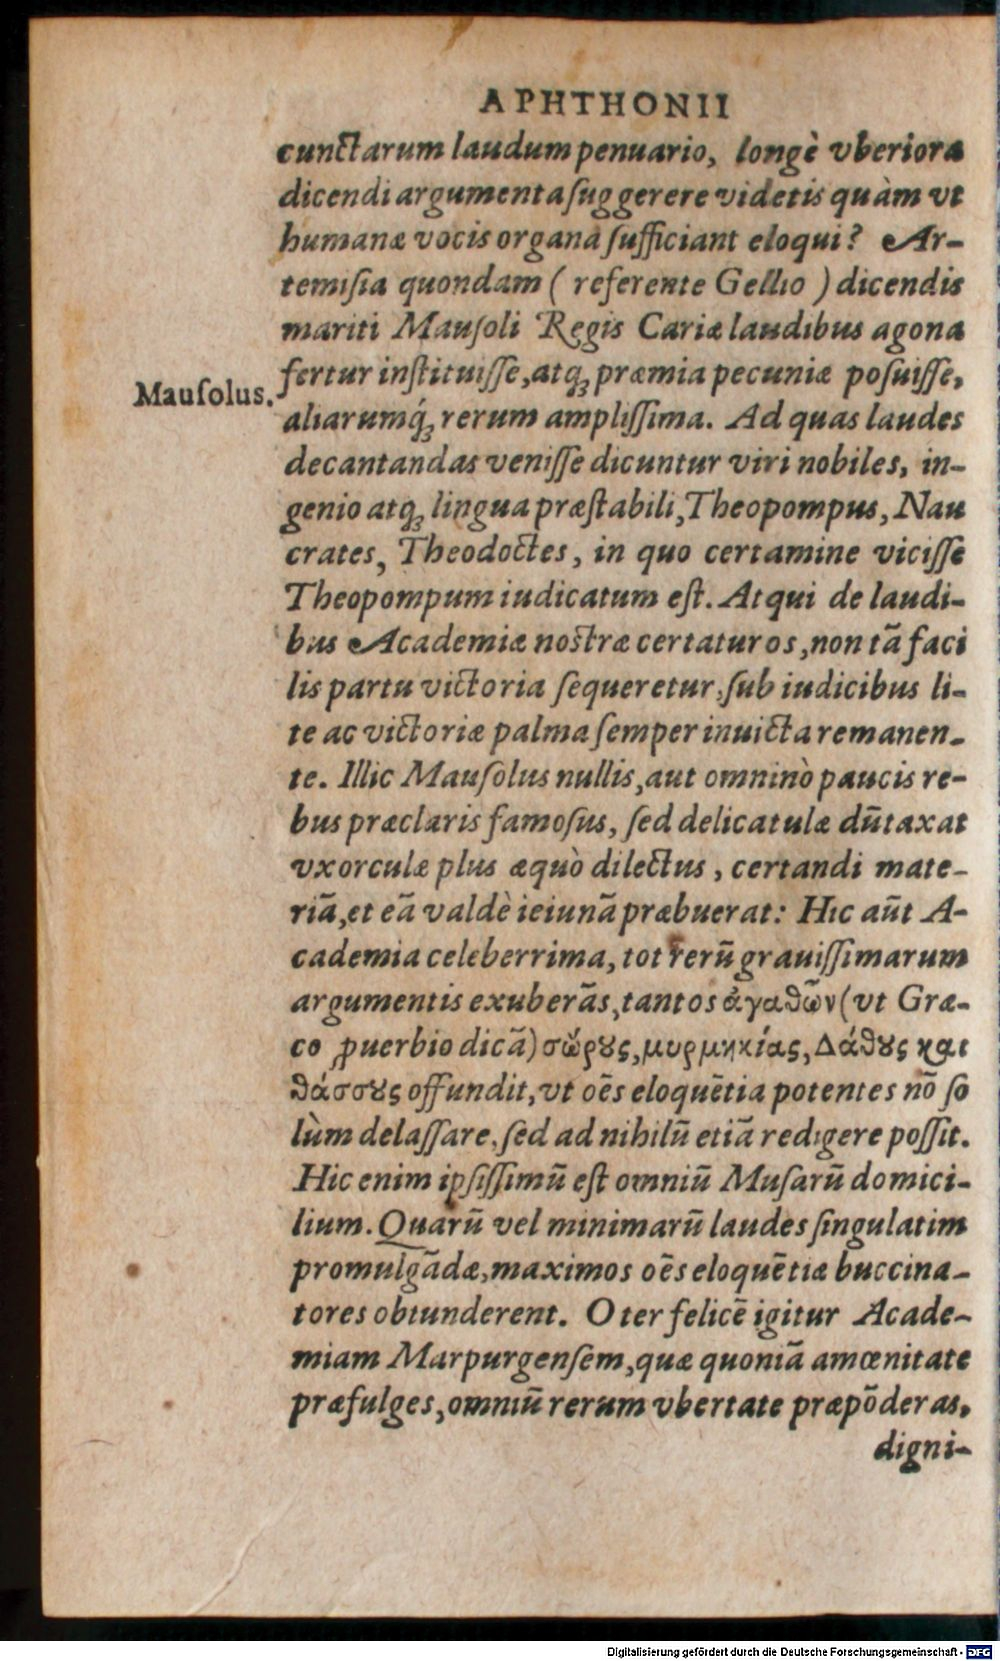 APHTHONII
cunctarum laudum penuario, longè vberiora
dicendi argumenta ſuggerere videtis quàm vt
humanæ vocis organa ſufficiant eloqui? Ar-
temiſia quondam ( referente Gellio ) dicendis
mariti Mauſoli Regis Cariæ laudibus agona
fertur inſtituiſſe, atq́ꝫ præmia pecuniæ poſuiſſe,
Mauſolus.
aliarumq́ꝫ rerum ampliſſima. Ad quas laudes
decantandas veniſſe dicuntur viri nobiles, in-
genio atqꝫ lingua præſtabili, Theopompus, Nau
crates, Theodoctes, in quo certamine viciſſe
Theopompum iudicatum eſt. Atqui de laudi-
bus Academiæ noſtræ certaturos, non tā faci
lis partu victoria ſequeretur, ſub iudicibus li-
te ac victoriæ palma ſemper inuicta remanen-
te. Illic Mauſolus nullis, aut omninò paucis re-
bus præclaris famoſus, ſed delicatulæ dūtaxat
vxorculæ plus æquò dilectus, certandi mate-
riā, et eā valdè ieiunā præbuerat: Hic aūt A-
cademia celeberrima, tot rerū grauiſſimarum
argumentis exuberās, tantos ἀγαθῶν (vt Græ-
co ꝓuerbio dicā) σώρȣς, μυρμηκίας, Δάθȣς και
θάσσȣς offundit, vt oēs eloquētia potentes nō ſo
lùm delaſſare, ſed ad nihilū etiā redigere poſſit.
Hic enim ipſiſſimū eſt omniū Muſarū domici-
lium. Quarū vel minimarū laudes ſingulatim
promulgādæ, maximos oēs eloquētiæ buccina-
tores obtunderent. O ter felicē igitur Acade-
miam Marpurgenſem, quæ quoniā amœnitate
præfulges, omniū rerum vbertate præpōderas,
digni-
Digitalisierung gefördert durch die Deutsche Forschungsgemeinschaft - DFG